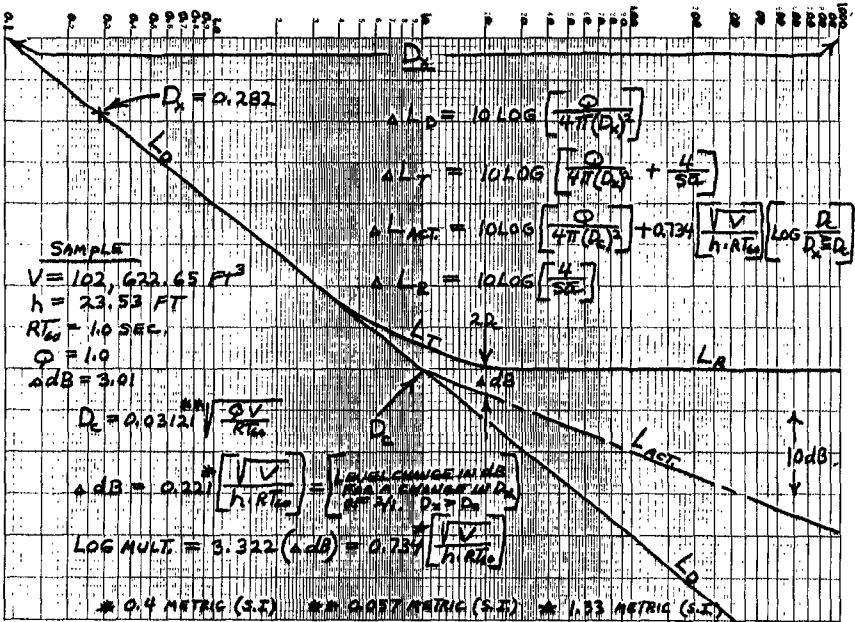 D_x
D_x = 0.282
L_D
ΔL_D = 10 LOG [Q / 4π(D_x)²]
ΔL_T = 10 LOG [Q / 4π(D_x)² + 4 / Sā]
ΔL_ACT. = 10 LOG [Q / 4π(D_c)²] + 0.734 [√V / h·RT₆₀] [LOG D_c / D_x ≥ D_c]
ΔL_R = 10 LOG [4 / Sā]
SAMPLE
V = 102,622.65 FT³
h = 23.53 FT
RT₆₀ = 1.0 SEC.
Q = 1.0
ΔdB = 3.01
D_c = 0.03121** √(QV / RT₆₀)
L_T
2D_c
ΔdB
L_R
D_c
L_ACT.
10 dB.
ΔdB = 0.221* [√V / h·RT₆₀] = [LEVEL CHANGE IN dB
FOR A CHANGE IN D_x
OF 2/1.
LOG MULT. = 3.322 (ΔdB) = 0.734* [√V / h·RT₆₀]
L_D
* 0.4 METRIC (S.I.) ** 0.057 METRIC (S.I.) * 1.33 METRIC (S.I.)